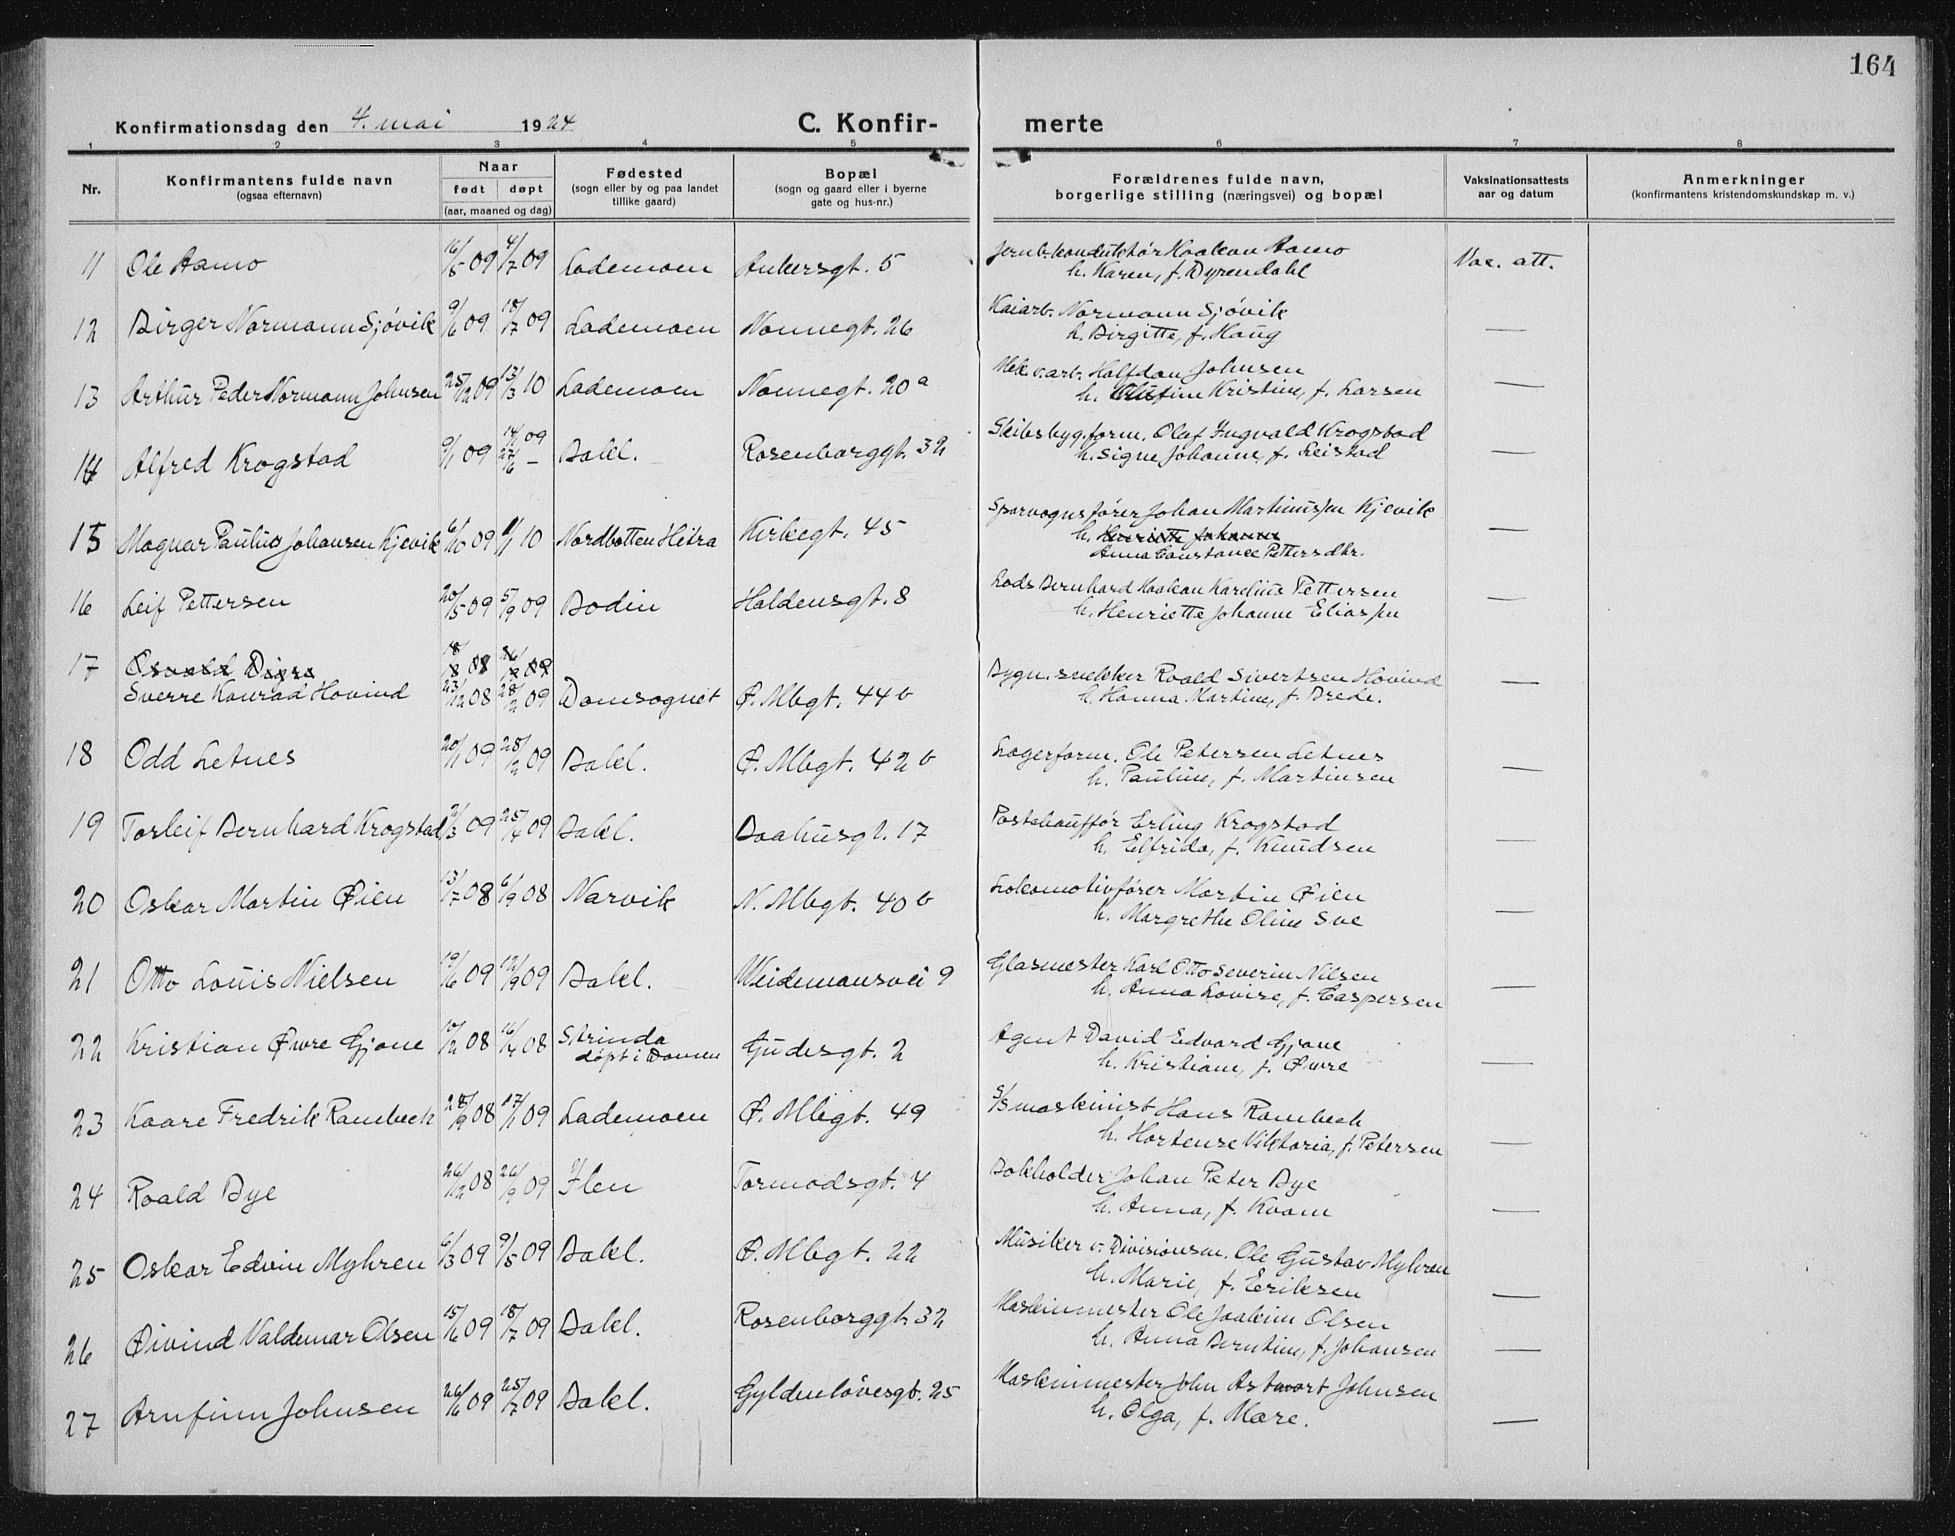 164
Konfirmationsdag den 4. mai 1924 C. Konfir- merte
1 2 3 4 5 6 7 8
Nr. Konfirmantens fulde navn (ogsaa efternavn) Naar født døpt (aar, maaned og dag) Fødested (sogn eller by og paa landet tillike gaard) Bopæl (sogn og gaard eller i byerne gate og hus-nr.) Forældrenes fulde navn, borgerlige stilling (næringsvei) og bopæl Vaksinationsattests aar og datum Anmerkninger (konfirmantens kristendomskundskap m. v.)
11 Ole Aamo 16/5 09 4/7 09 Lademoen Ankersgt. 5 Jernb.konduktør Haakon Aamo Vac. att.
h. Karen, f. Dyrendahl
12 Birger Normann Sjøvik 9/6 09 18/7 09 Lademoen Nonnegt. 26 Kaiarb. Normann Sjøvik —
h. Birgitte, f. Haug
13 Arthur Peder Normann Johnsen 25/12 09 13/3 10 Lademoen Nonnegt. 20a Mek.v.arb. Halfdan Johnsen —
h. Kristine, f. Larsen
14 Alfred Krogstad 9/1 09 14/1 09 27/6 — Bakl. Rosenborggt. 32 Skibsbyg.form. Olaf Ingvald Krogstad —
h. Signe Johanne, f. Leistad
15 Magnar Paulus Johansen Kjevik 6/10 09 1/1 10 Nordbotten Hitra Kirkegt. 45 Sporvognsfører Johan Martinussen Kjevik —
h. Henriette Johanne
Anna Constance Pettersdtr.
16 Leif Pettersen 20/5 09 5/9 09 Bodin Haldensgt. 8 Lods Bernhard Haakon Karelius Pettersen —
h. Henriette Johanne Eliassen
17 Osvald Digre
Sverre Konrad Hovind 23/12 08 28/2 09 Domsognet Ø. Mbgt. 44b Bygn.snekker Roald Sivertsen Hovind —
h. Hanna Martine, f. Brede.
18 Odd Letnes 20/1 09 28/2 09 Bakl. Ø. Mbgt. 42b Lagerform. Ole Petersen Letnes —
h. Pauline, f. Martinsen
19 Torleif Bernhard Krogstad 2/3 09 25/4 09 Bakl. Baahusgt. 17 Postchauffør Erling Krogstad —
h. Elfrida, f. Knudsen
20 Oskar Martin Øien 13/7 08 6/9 08 Narvik N. Mbgt. 40b Lokomotivfører Martin Øien —
h. Margrethe Oline Sve
21 Otto Louis Nielsen 19/6 09 12/9 09 Bakl. Weidemansvei 9 Glasmester Karl Otto Severin Nilsen —
h. Anna Lovise, f. Caspersen
22 Kristian Øvre Gjone 10/2 08 16/4 08 Strinda døpt i Domen Gudesgt. 2 Agent David Edvard Gjone —
h. Kristiane, f. Øvre
23 Kaare Fredrik Rambech 28/9 08 17/1 09 Lademoen Ø. Mbgt. 49 S/S maskinist Hans Rambech —
h. Hortense Viktoria, f. Petersen
24 Roald Bye 26/12 08 26/9 09 Ilen Tormodsgt. 4 Bokholder Johan Peter Bye —
h. Anna, f. Kvam
25 Oskar Edvin Myhren 6/3 09 9/5 09 Bakl. Ø. Mbgt. 22 Musiker v. Divisionsm. Ole Gustav Myhren —
h. Marie, f. Eriksen
26 Øivind Valdemar Olsen 15/6 09 18/7 09 Bakl. Rosenborggt. 32 Maskinmester Ole Joakim Olsen —
h. Anna Berntine, f. Johansen
27 Arnfinn Johnsen 26/6 09 25/7 09 Bakl. Gyldenløvesgt. 25 Maskinmester John Johnsen —
h. Olga, f. Mære.